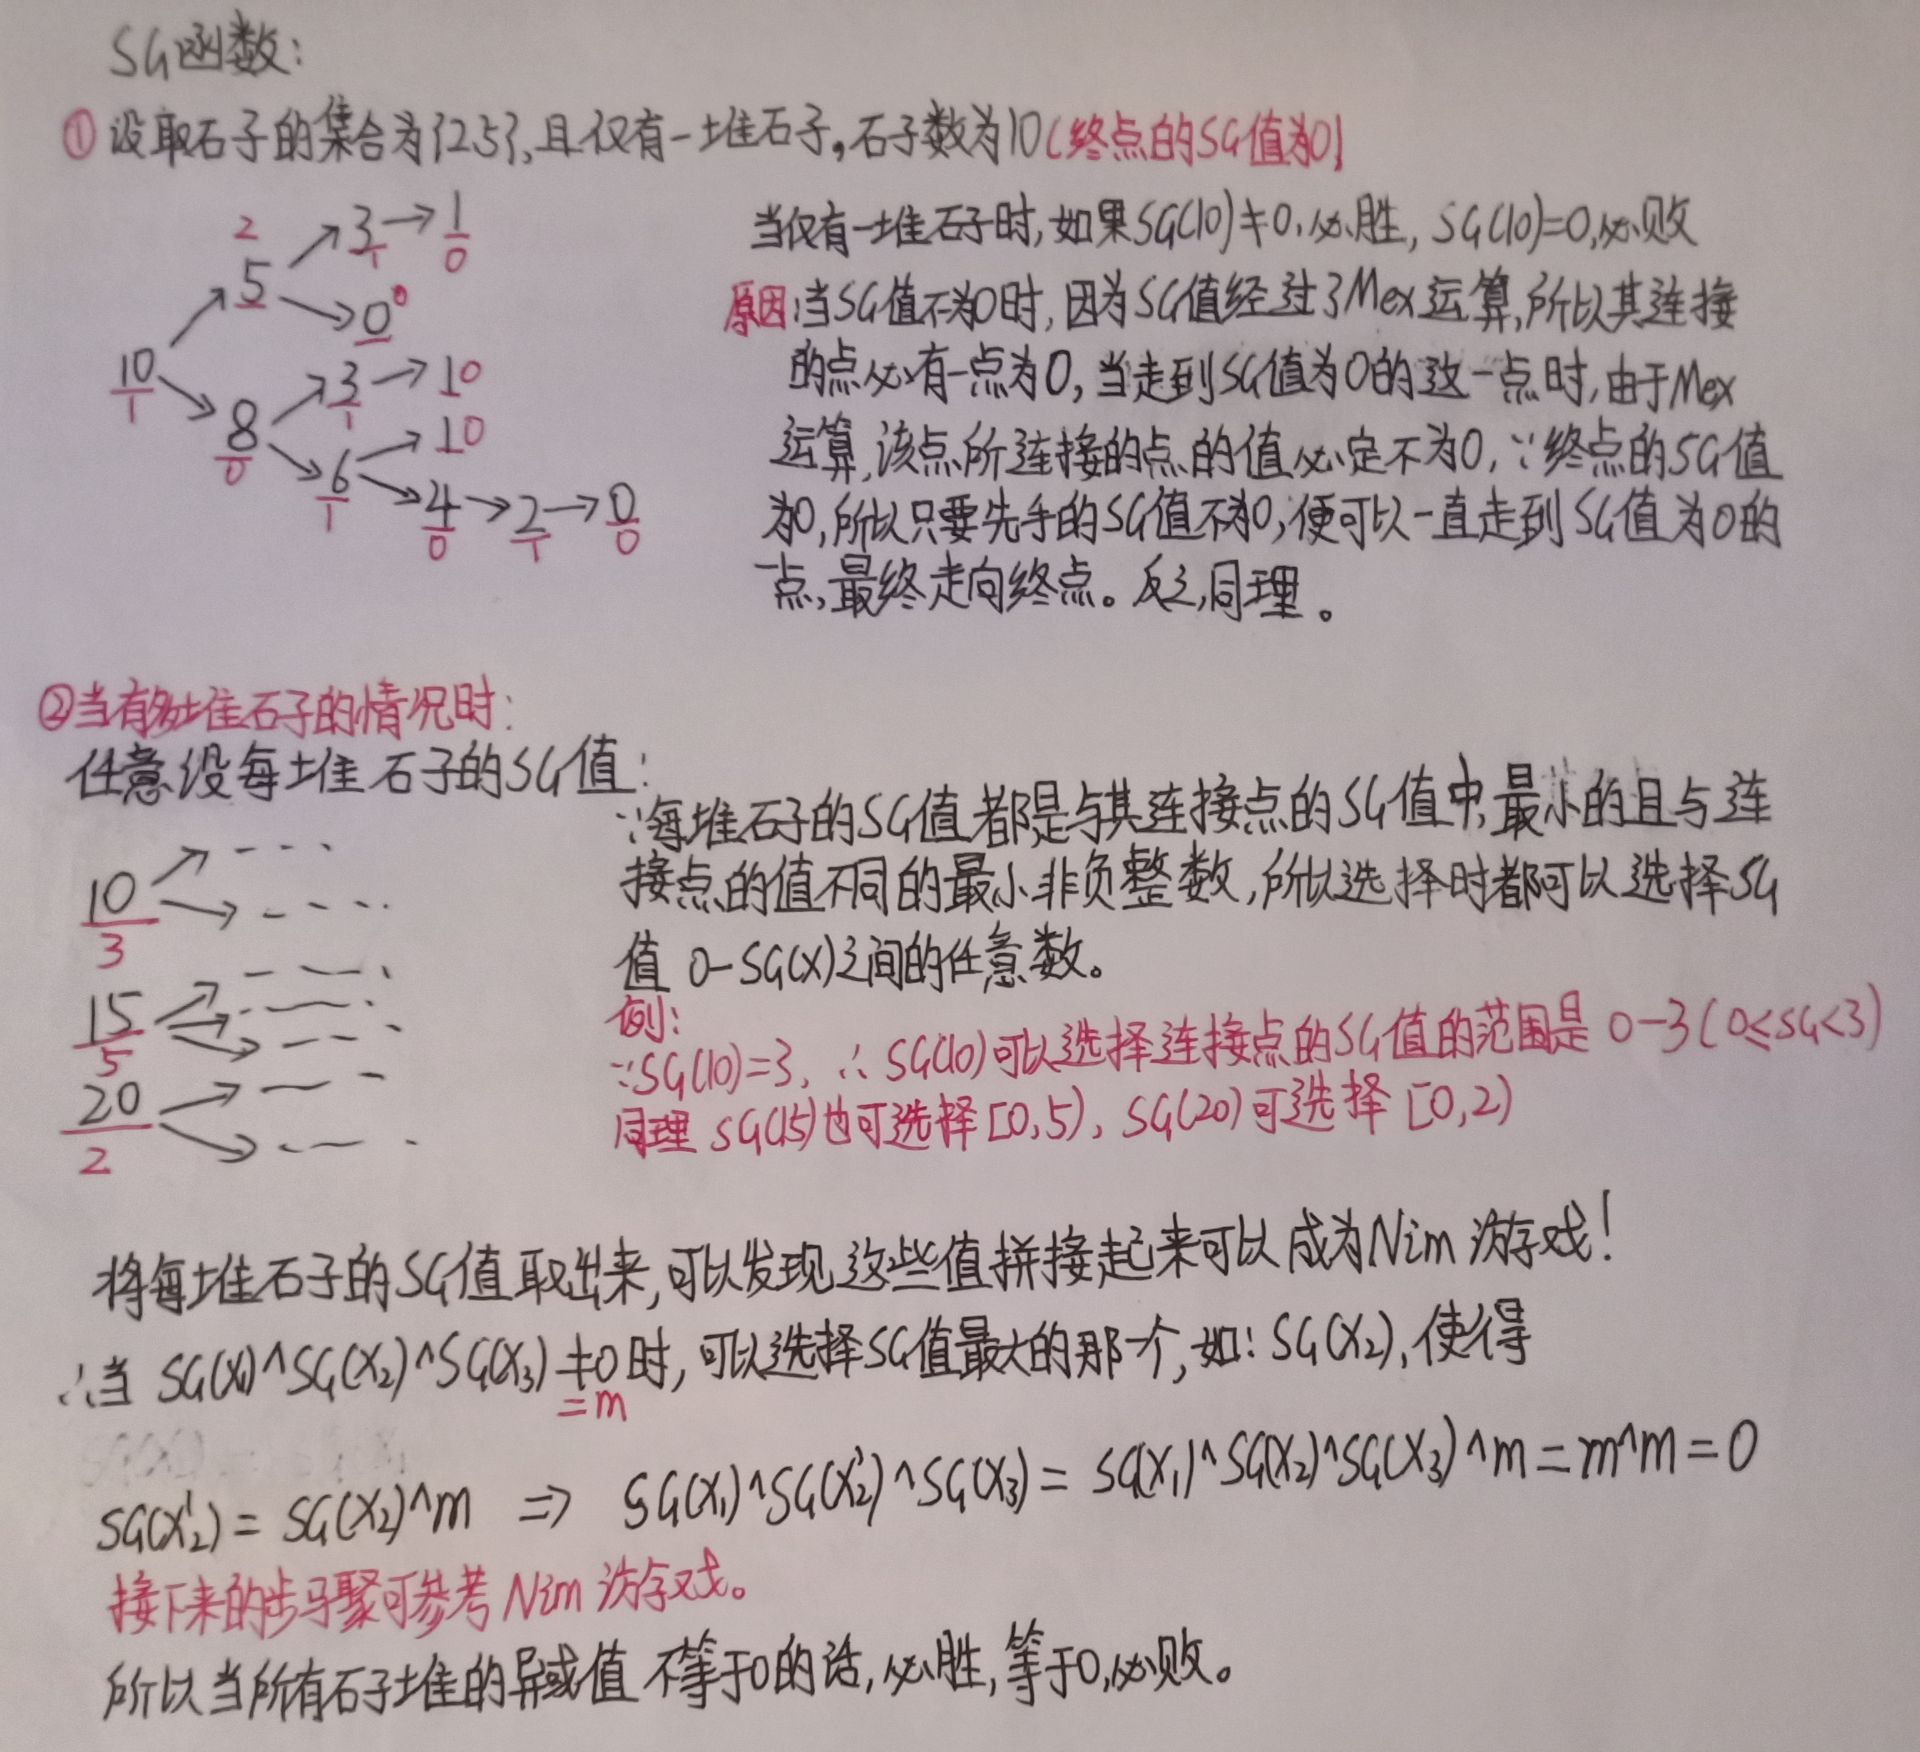 SG函数:
①设取石子的集合为{2,5},且仅有一堆石子,石子数为10(终点的SG值为0)
2 3→1
1 0
5
0 0
10
1
3→10
1
8
0
10
6
1
4→2→0
0 1 0
当仅有一堆石子时,如果SG(10)≠0,必胜, SG(10)=0,必败
原因:当SG值不为0时,因为SG值经过了Mex运算,所以其连接
的点必有一点为0,当走到SG值为0的这一点时,由于Mex
运算,该点所连接的点的值必定不为0,∵终点的SG值
为0,所以只要先手的SG值不为0,便可以一直走到SG值为0的
一点,最终走向终点。反之,同理。
②当有多堆石子的情况时:
任意设每堆石子的SG值:
10
3
15
5
20
2
∵每堆石子的SG值都是与其连接点的SG值中,最小的且与连
接点的值不同的最小非负整数,所以选择时都可以选择SG
值 0-SG(X)之间的任意数。
例:
∵SG(10)=3, ∴SG(10)可以选择连接点的SG值的范围是 0-3(0≤SG<3)
同理 SG(15)也可选择[0,5), SG(20)可选择[0,2)
将每堆石子的SG值取出来,可以发现这些值拼接起来可以成为Nim游戏!
∴当 SG(X₁)^SG(X₂)^SG(X₃)≠0时,可以选择SG值最大的那一个,如: SG(X₂),使得
=m
SG(X₂')=SG(X₂)^m ⇒ SG(X₁)^SG(X₂')^SG(X₃)=SG(X₁)^SG(X₂)^SG(X₃)^m=m^m=0
接下来的步骤可参考Nim游戏。
所以当所有石子堆的异或值不等于0的话,必胜,等于0,必败。